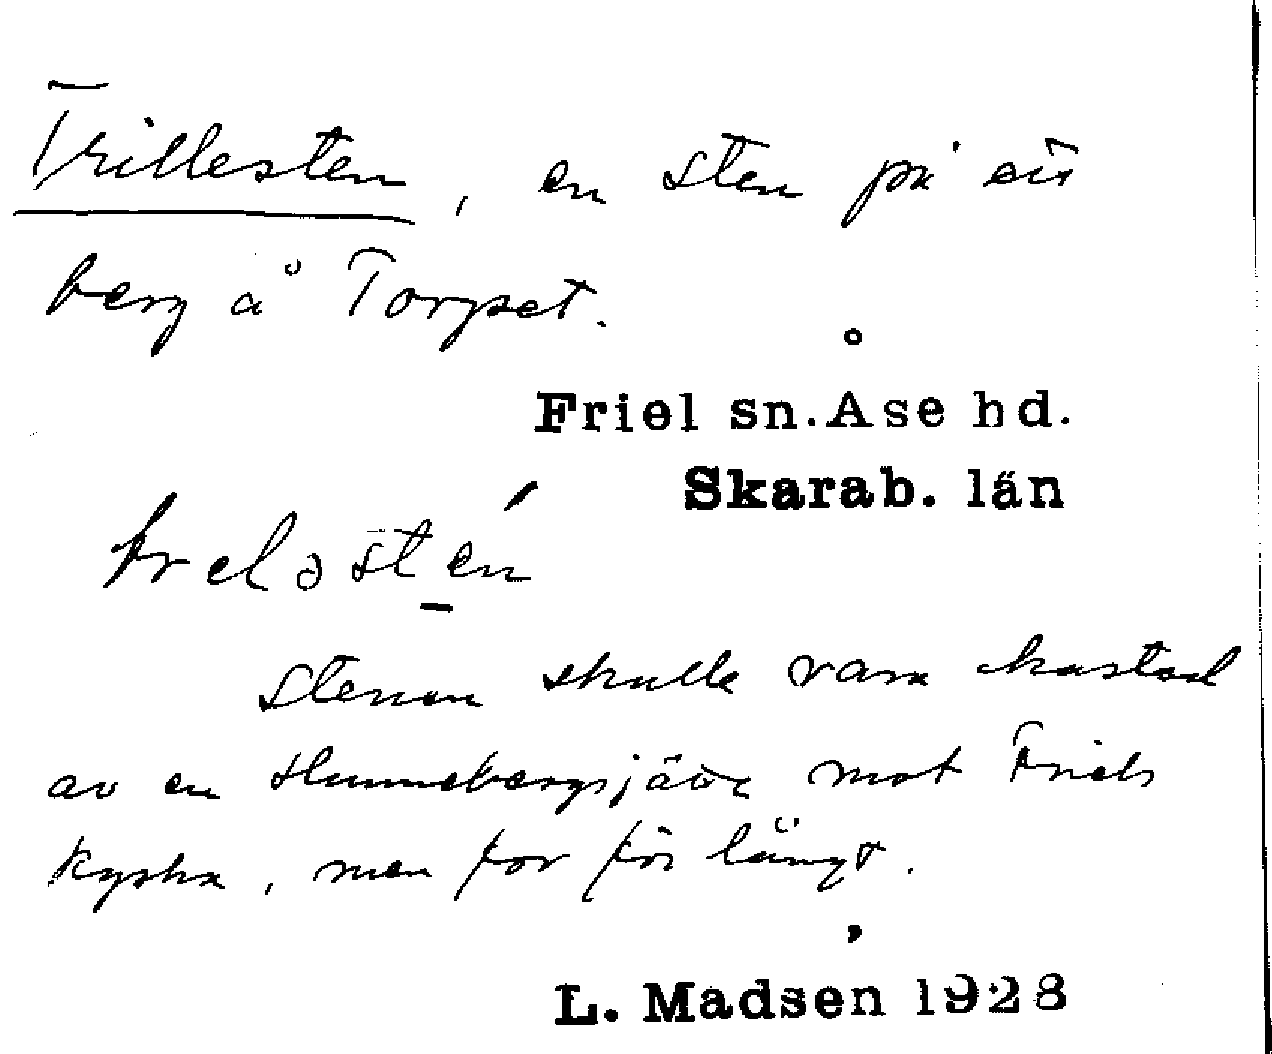 Trillesten, en sten på ett
berg å Torpset.
Friel sn. Åse hd.
Skarab. län
stenen skulle vara kastad
av en Hunnebergsjätte mot Friels
kyrka, men for för långt.
L. Madsen 1928